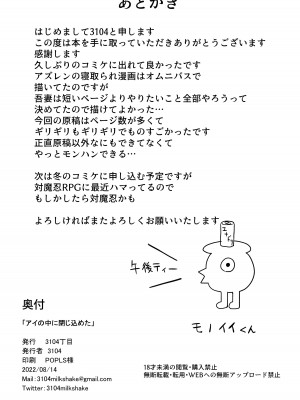 あとがき
はじめまして3104と申します
この度は本を手に取っていただきありがとうございます
感謝します
久しぶりのコミケに出れて良かったです
アズレンの寝取られ漫画はオムニバスで
描いてたのですが
吾妻は短いページよりやりたいこと全部やろうって
決めてたので描けてよかった…
今回の原稿はページ数が多くて
ギリギリもギリギリでものすごかったです
正直原稿以外なにもできてなくて
やっとモンハンできる…
次は冬のコミケに申し込む予定ですが
対魔忍RPGに最近ハマってるので
もしかしたら対魔忍かも
よろしければまたよろしくお願いいたします
午後ティー
モノイイくん
奥付
「アイの中に閉じ込めた」
発行 3104丁目
発行者 3104
印刷 POPLS様
2022/08/14
Mail:3104milkshake@gmail.com
Twitter:3104milkshake
18才未満の閲覧・購入禁止
無断転載・転用・WEBへの無断アップロード禁止